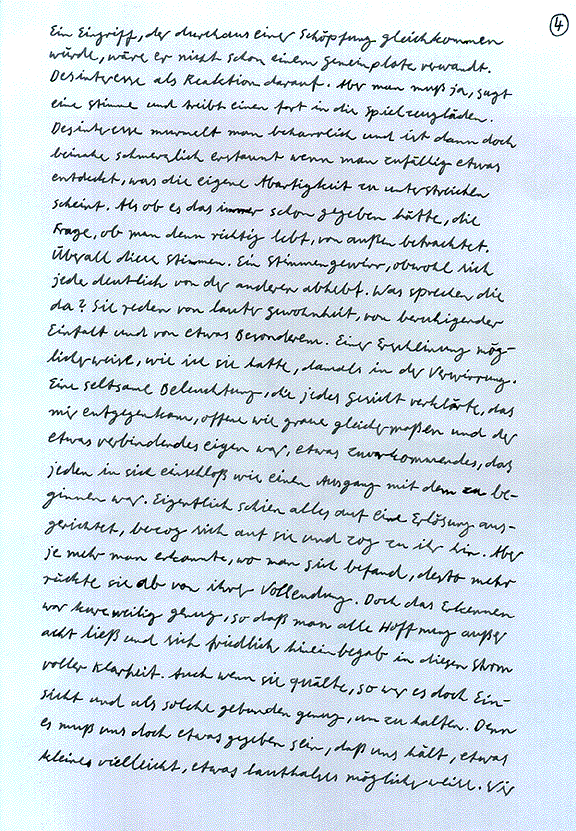 4
Ein Eingriff, der durchaus einer Schöpfung gleichkommen
würde, wäre er nicht schon einem Gemeinplatz verwandt.
Desinteresse als Reaktion darauf. Aber man muß ja, sagt
eine Stimme und treibt einen fort in die Spielzeugläden.
Desinteresse murmelt man beharrlich und ist dann doch
beinahe schmerzlich erstaunt wenn man zufällig etwas
entdeckt, was die eigene Abartigkeit zu unterstreichen
scheint. Als ob es das immer schon gegeben hätte, die
Frage, ob man denn richtig lebt, von außen betrachtet.
Überall diese Stimmen. Ein Stimmengewirr, obwohl sich
jede deutlich von der anderen abhebt. Was sprechen die
da? Sie reden von lauter Gewohnheit, von beruhigender
Einfalt und von etwas Besonderem. Einer Erscheinung mög-
licherweise, wie ich sie hatte, damals in der Verwirrung.
Eine seltsame Beleuchtung, die jedes Gesicht verklärte, das
mir entgegenkam, offene wie graue gleichermaßen und der
etwas verbindendes eigen war, etwas zuvorkommendes, das
jeden in sich einschloß wie einen Ausgang mit dem zu be-
ginnen war. Eigentlich schien alles auf eine Erlösung aus-
gerichtet, bezog sich auf sie und zog zu ihr hin. Aber
je mehr man erkannte, wo man sich befand, desto mehr
rückte sie ab von ihrer Vollendung. Doch das Erkennen
war kurzweilig genug, so daß man alle Hoffnung außer
acht ließ und sich friedlich hineinbegab in diesen Strom
voller Klarheit. Auch wenn sie quälte, so war es doch Ein-
sicht und als solche gebunden genug, um zu halten. Denn
es muß uns doch etwas gegeben sein, daß uns hält, etwas
kleines vielleicht, etwas lauthalses möglicherweise. Wir